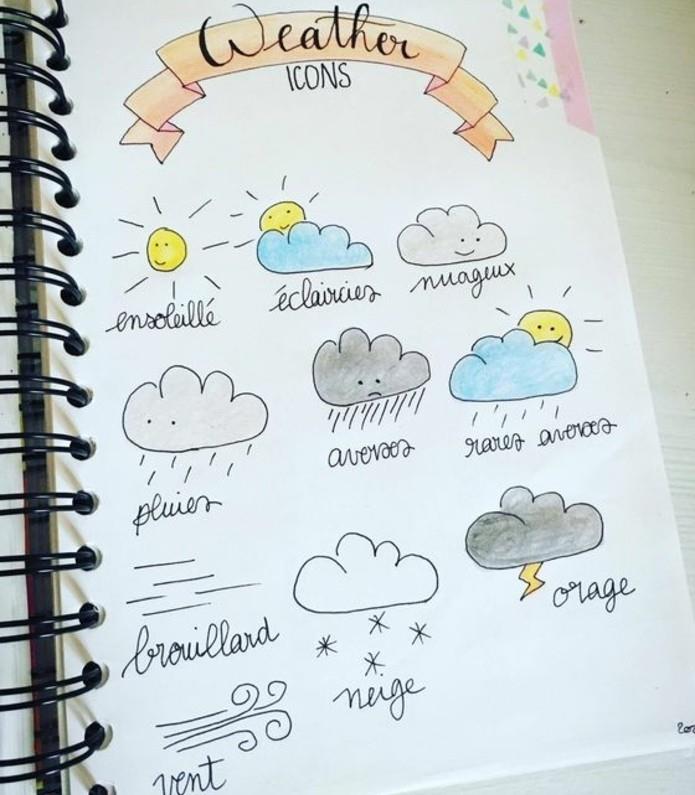 Weather
ICONS
ensoleillé
éclaircies
nuageux
pluies
averses
rares averses
brouillard
neige
orage
vent